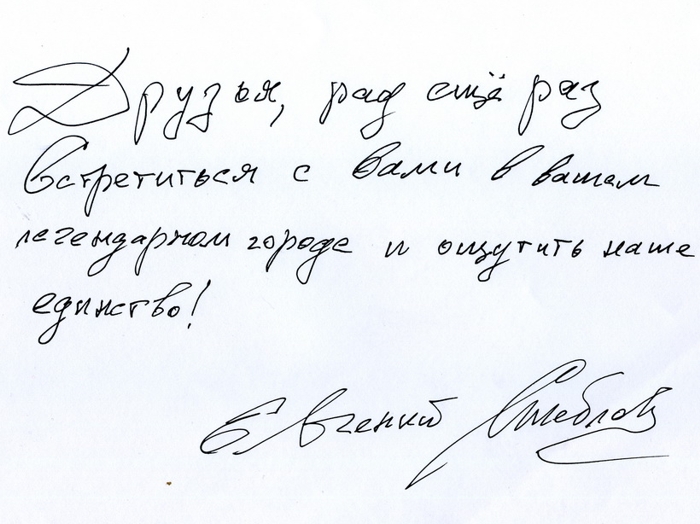 Друзья, рад ещё раз
встретиться с Вами в вашем
легендарном городе и ощутить наше
единство!
Евгений Стеблов